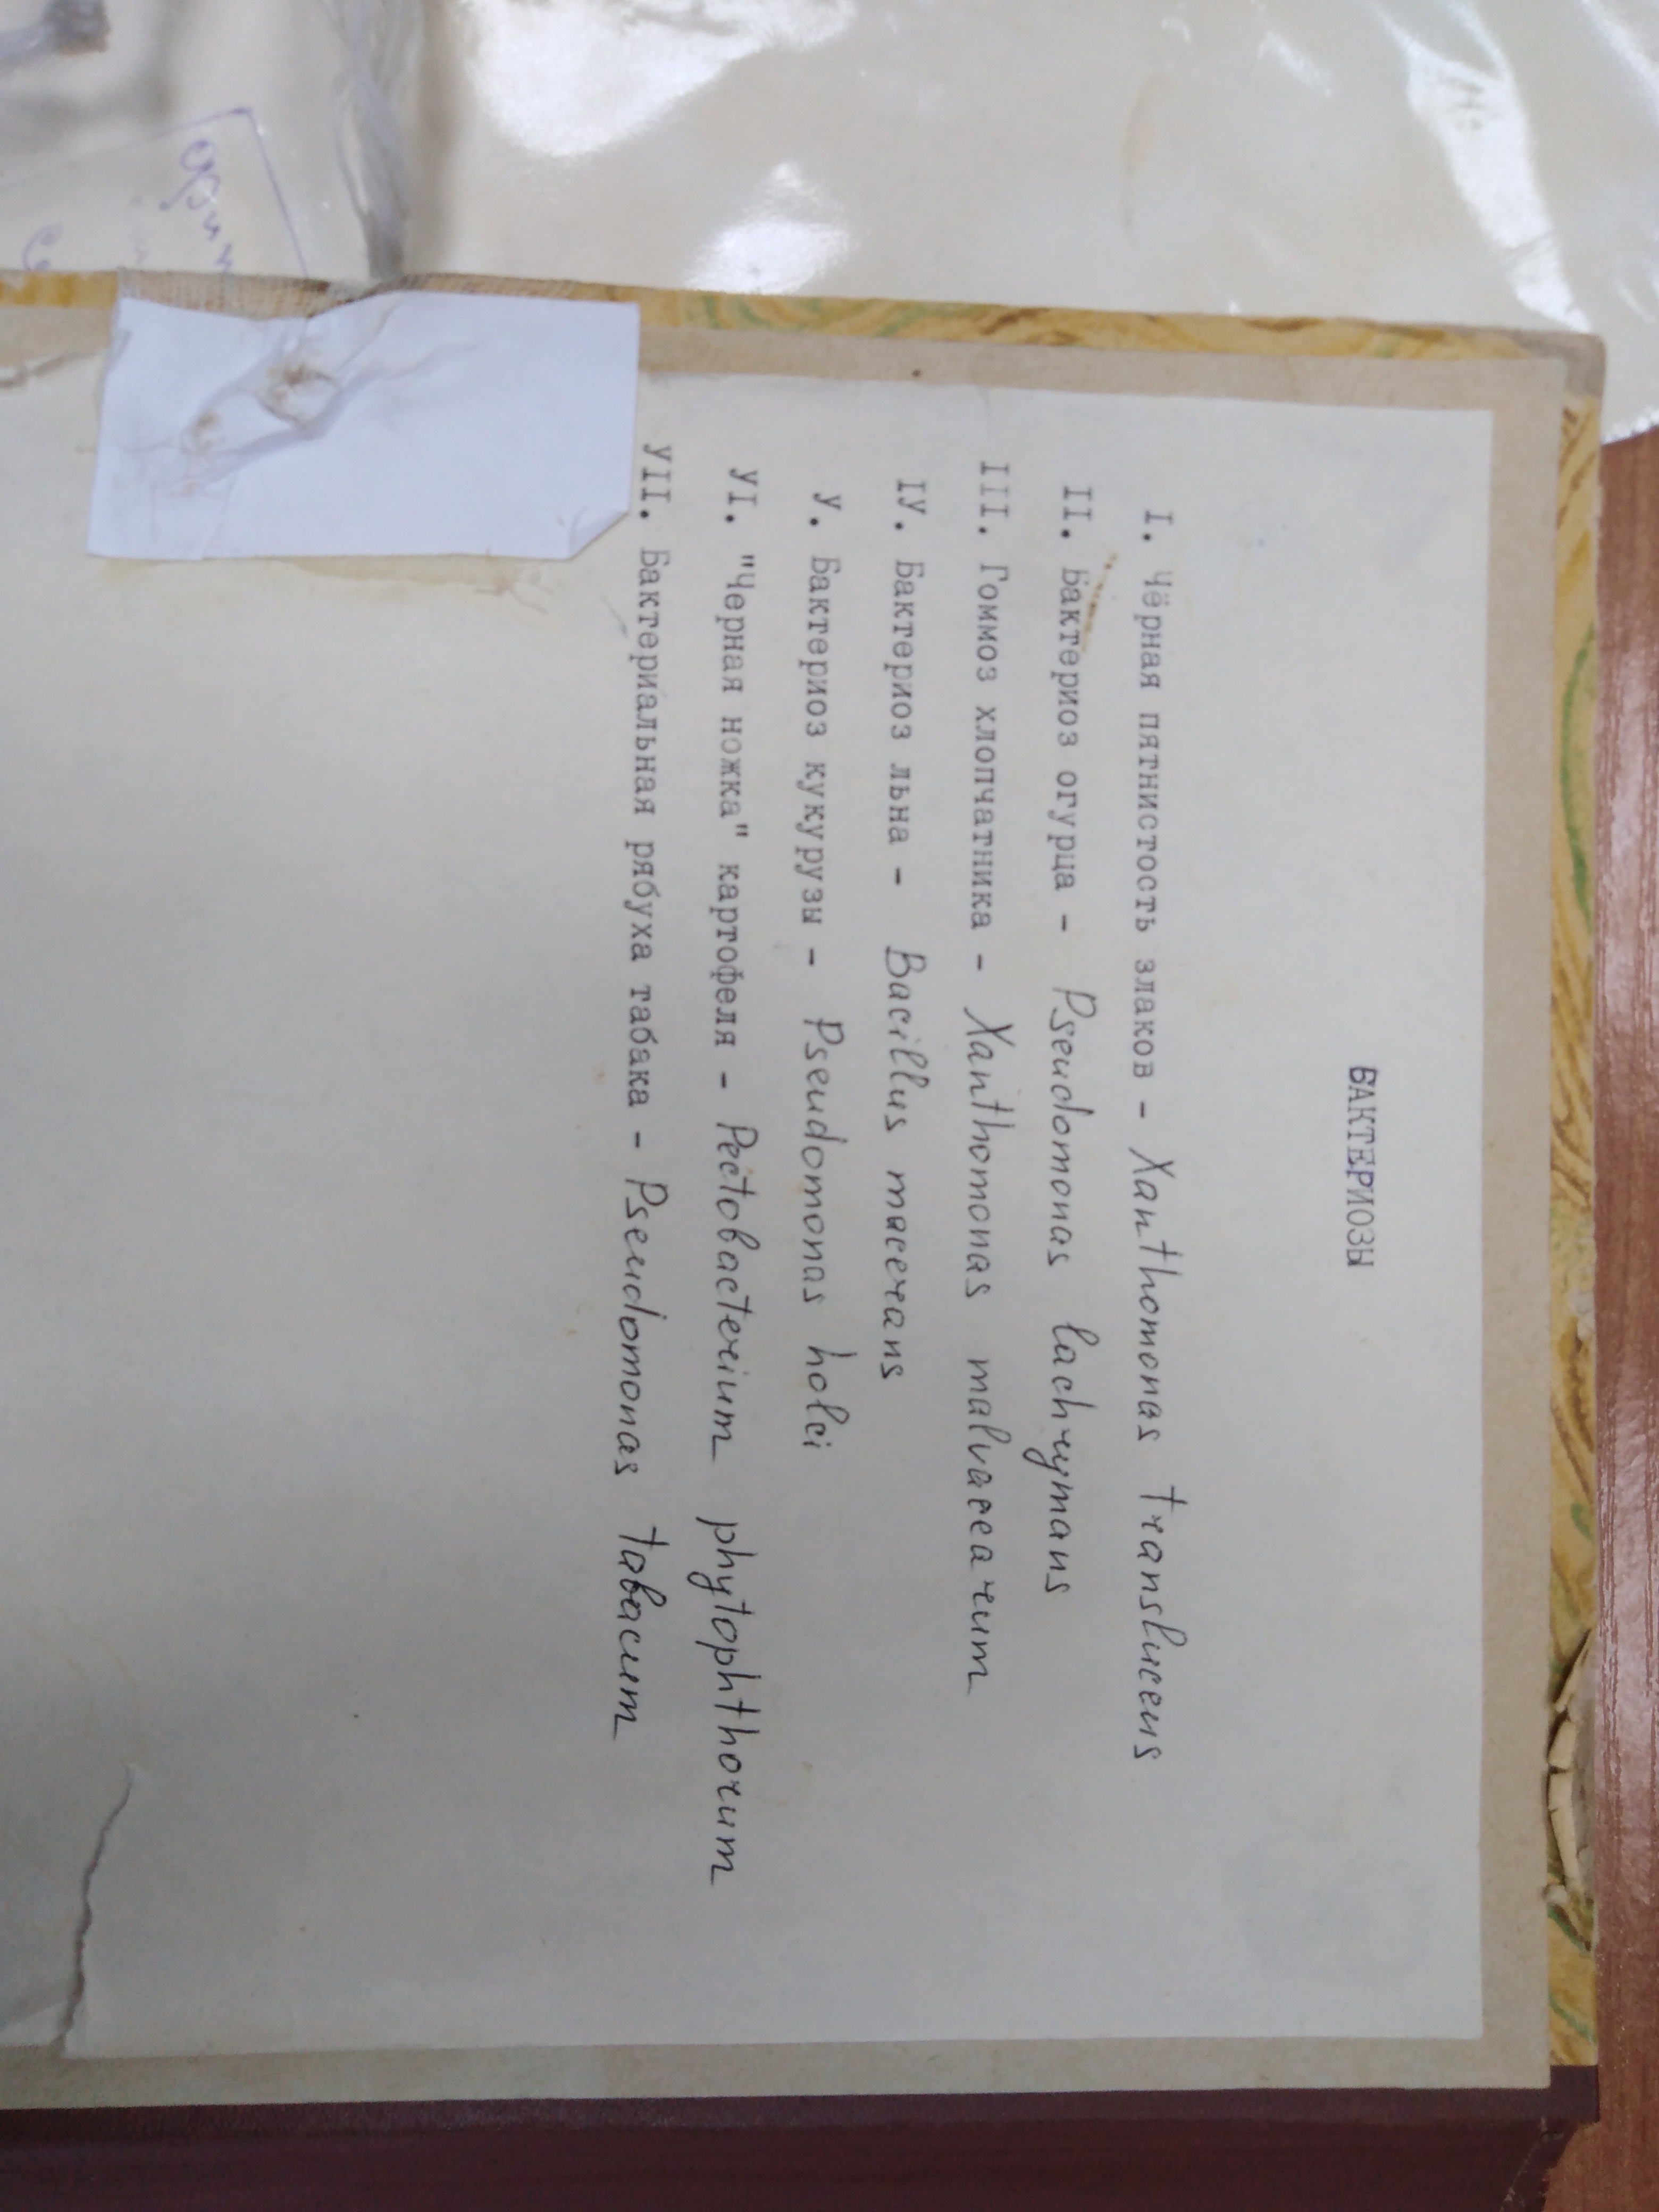 БАКТЕРИОЗЫ
I. Чёрная пятнистость злаков - Xanthomonas translucens
II. Бактериоз огурца - Pseudomonas lachrymans
III. Гоммоз хлопчатника - Xanthomonas malvacearum
IУ. Бактериоз льна - Bacillus macerans
У. Бактериоз кукурузы - Pseudomonas holci
УI. "Черная ножка" картофеля - Pectobacterium phytophthorum
УII. Бактериальная рябуха табака - Pseudomonas tabacum